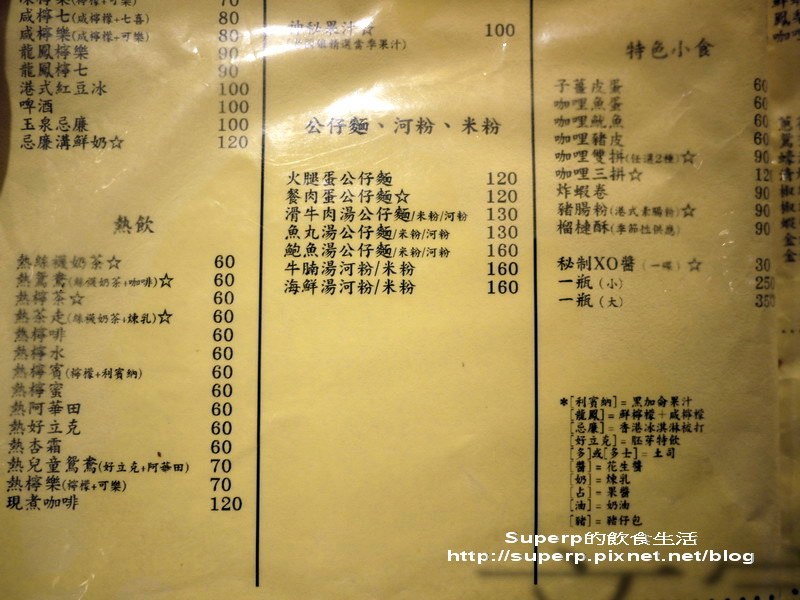 咸檸七(咸檸檬+七喜) 80
咸檸樂(咸檸檬+可樂) 80
龍鳳檸樂 90
龍鳳檸七 90
港式紅豆冰 100
啤酒 100
玉泉忌廉 100
忌廉溝鮮奶☆ 120
熱飲
熱絲襪奶茶☆ 60
熱鴛鴦(絲襪奶茶+咖啡)☆ 60
熱檸茶☆ 60
熱茶走(絲襪奶茶+煉乳)☆ 60
熱檸啡 60
熱檸水 60
熱檸賓(檸檬+利賓納) 60
熱檸蜜 60
熱阿華田 60
熱好立克 60
熱杏霜 60
熱兒童鴛鴦(好立克+阿華田) 70
熱檸樂(檸檬+可樂) 70
現煮咖啡 120
神秘果汁☆ 100
公仔麵、河粉、米粉
火腿蛋公仔麵 120
餐肉蛋公仔麵☆ 120
滑牛肉湯公仔麵/米粉/河粉 130
魚丸湯公仔麵/米粉/河粉 130
鮑魚湯公仔麵/米粉/河粉 160
牛腩湯河粉/米粉 160
海鮮湯河粉/米粉 160
特色小食
子薑皮蛋 60
咖哩魚蛋 60
咖哩魷魚 60
咖哩豬皮 60
咖哩雙拼(任選2種)☆ 90
咖哩三拼☆ 12
炸蝦卷 90
豬腸粉(港式素腸粉)☆ 90
榴槤酥(季節性供應) 90
秘制XO醬(一碟)☆ 30
一瓶(小) 250
一瓶(大) 350
*[利賓納]=黑加侖果汁
[龍鳳]=鮮檸檬+咸檸檬
[忌廉]=香港冰淇淋梳打
[好立克]=胚芽特飲
[多]或[多士]=土司
[醬]=花生醬
[奶]=煉乳
[占]=果醬
[油]=奶油
[豬]=豬仔包
Superp的飲食生活
http://superp.pixnet.net/blog